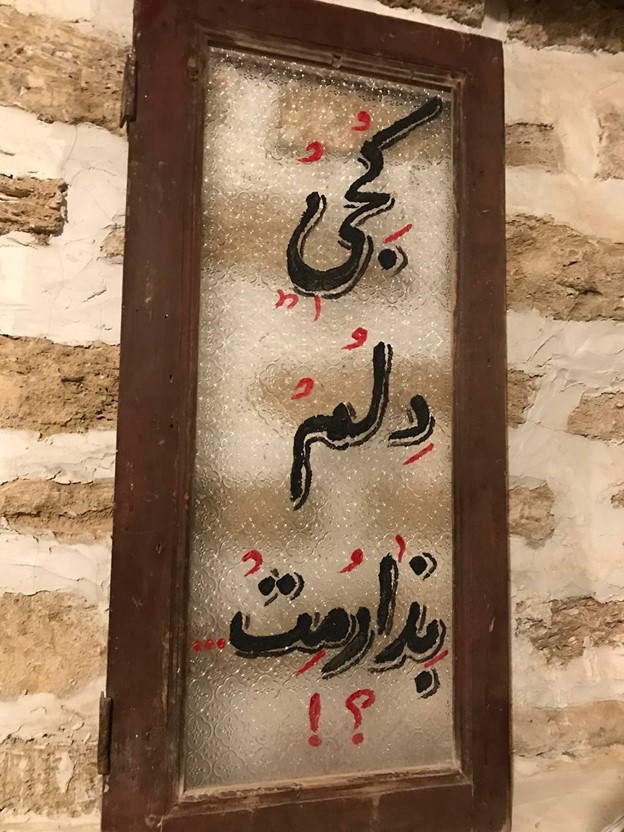 کُجِیْ
دِلُمْ
بِذارُمِتْ...
؟!